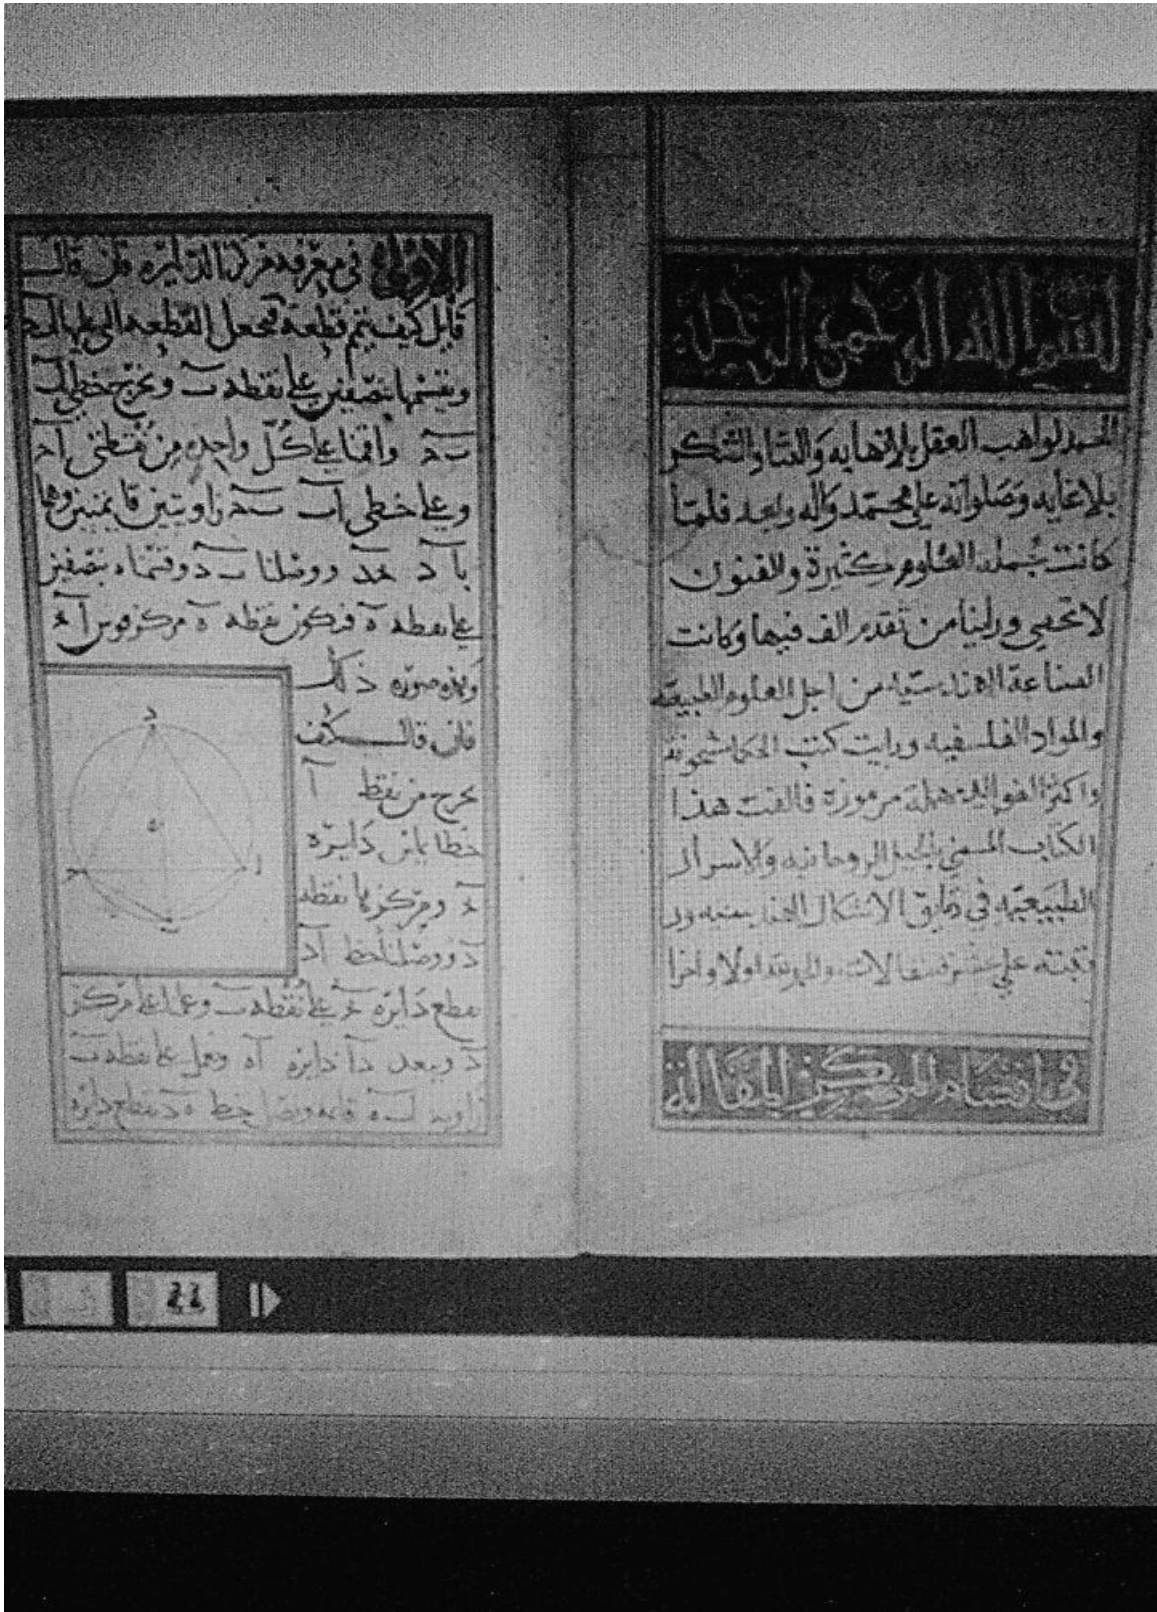 بسم الله الرحمن الرحيم
الحمد لواهب العقل بلا نهايه والثنا والشكر
بلا غايه وصلواته على محمد واله وبعد فلما
كانت جملة العلوم كثيرة والفنون
لا تحصي وراينا من تقدم الف فيها وكانت
الصناعة الهندسية من اجل العلوم الطبيعية
والمواد الفلسفيه ورايت كتب الحكما مشحونة
واكثر الفوايد مهملة مرموزة فالفت هذا
الكتاب المسمي بالحيل الروحانيه والاسرار
الطبيعيه في دقايق الاشكال الهندسيه
على عشر مقالات اولا واخرا
في المقالة
الاولى في معرفة مركز الدايره فان قال
قايل كيف نتم قطعة فنجعل القطعه التي عليها
ونقسمها بنصفين على نقطه ب ونخرج خطي اب
ب ج واقمنا على كل واحده من نقطتي ا ج
وعلى خطي اب ب ج زاويتين قايمتين وهما
با د ووصلنا ب د وقسمناه بنصفين
على نقطه ه فتكون نقطه ه مركز قوس
وهذه صوره ذلك
د
ه
ج
ا
ب
فان قال كيف
نخرج من نقطة ا
خطا يماس دايره
ومركزها نقطه
د ووصلنا خط اد
يقطع دايره على نقطه ب وعملنا على مركز
د وببعد دا دايره اه ونعمل على نقطه ب
زاويه قايمه ونصل خط ه د يقطع دايره